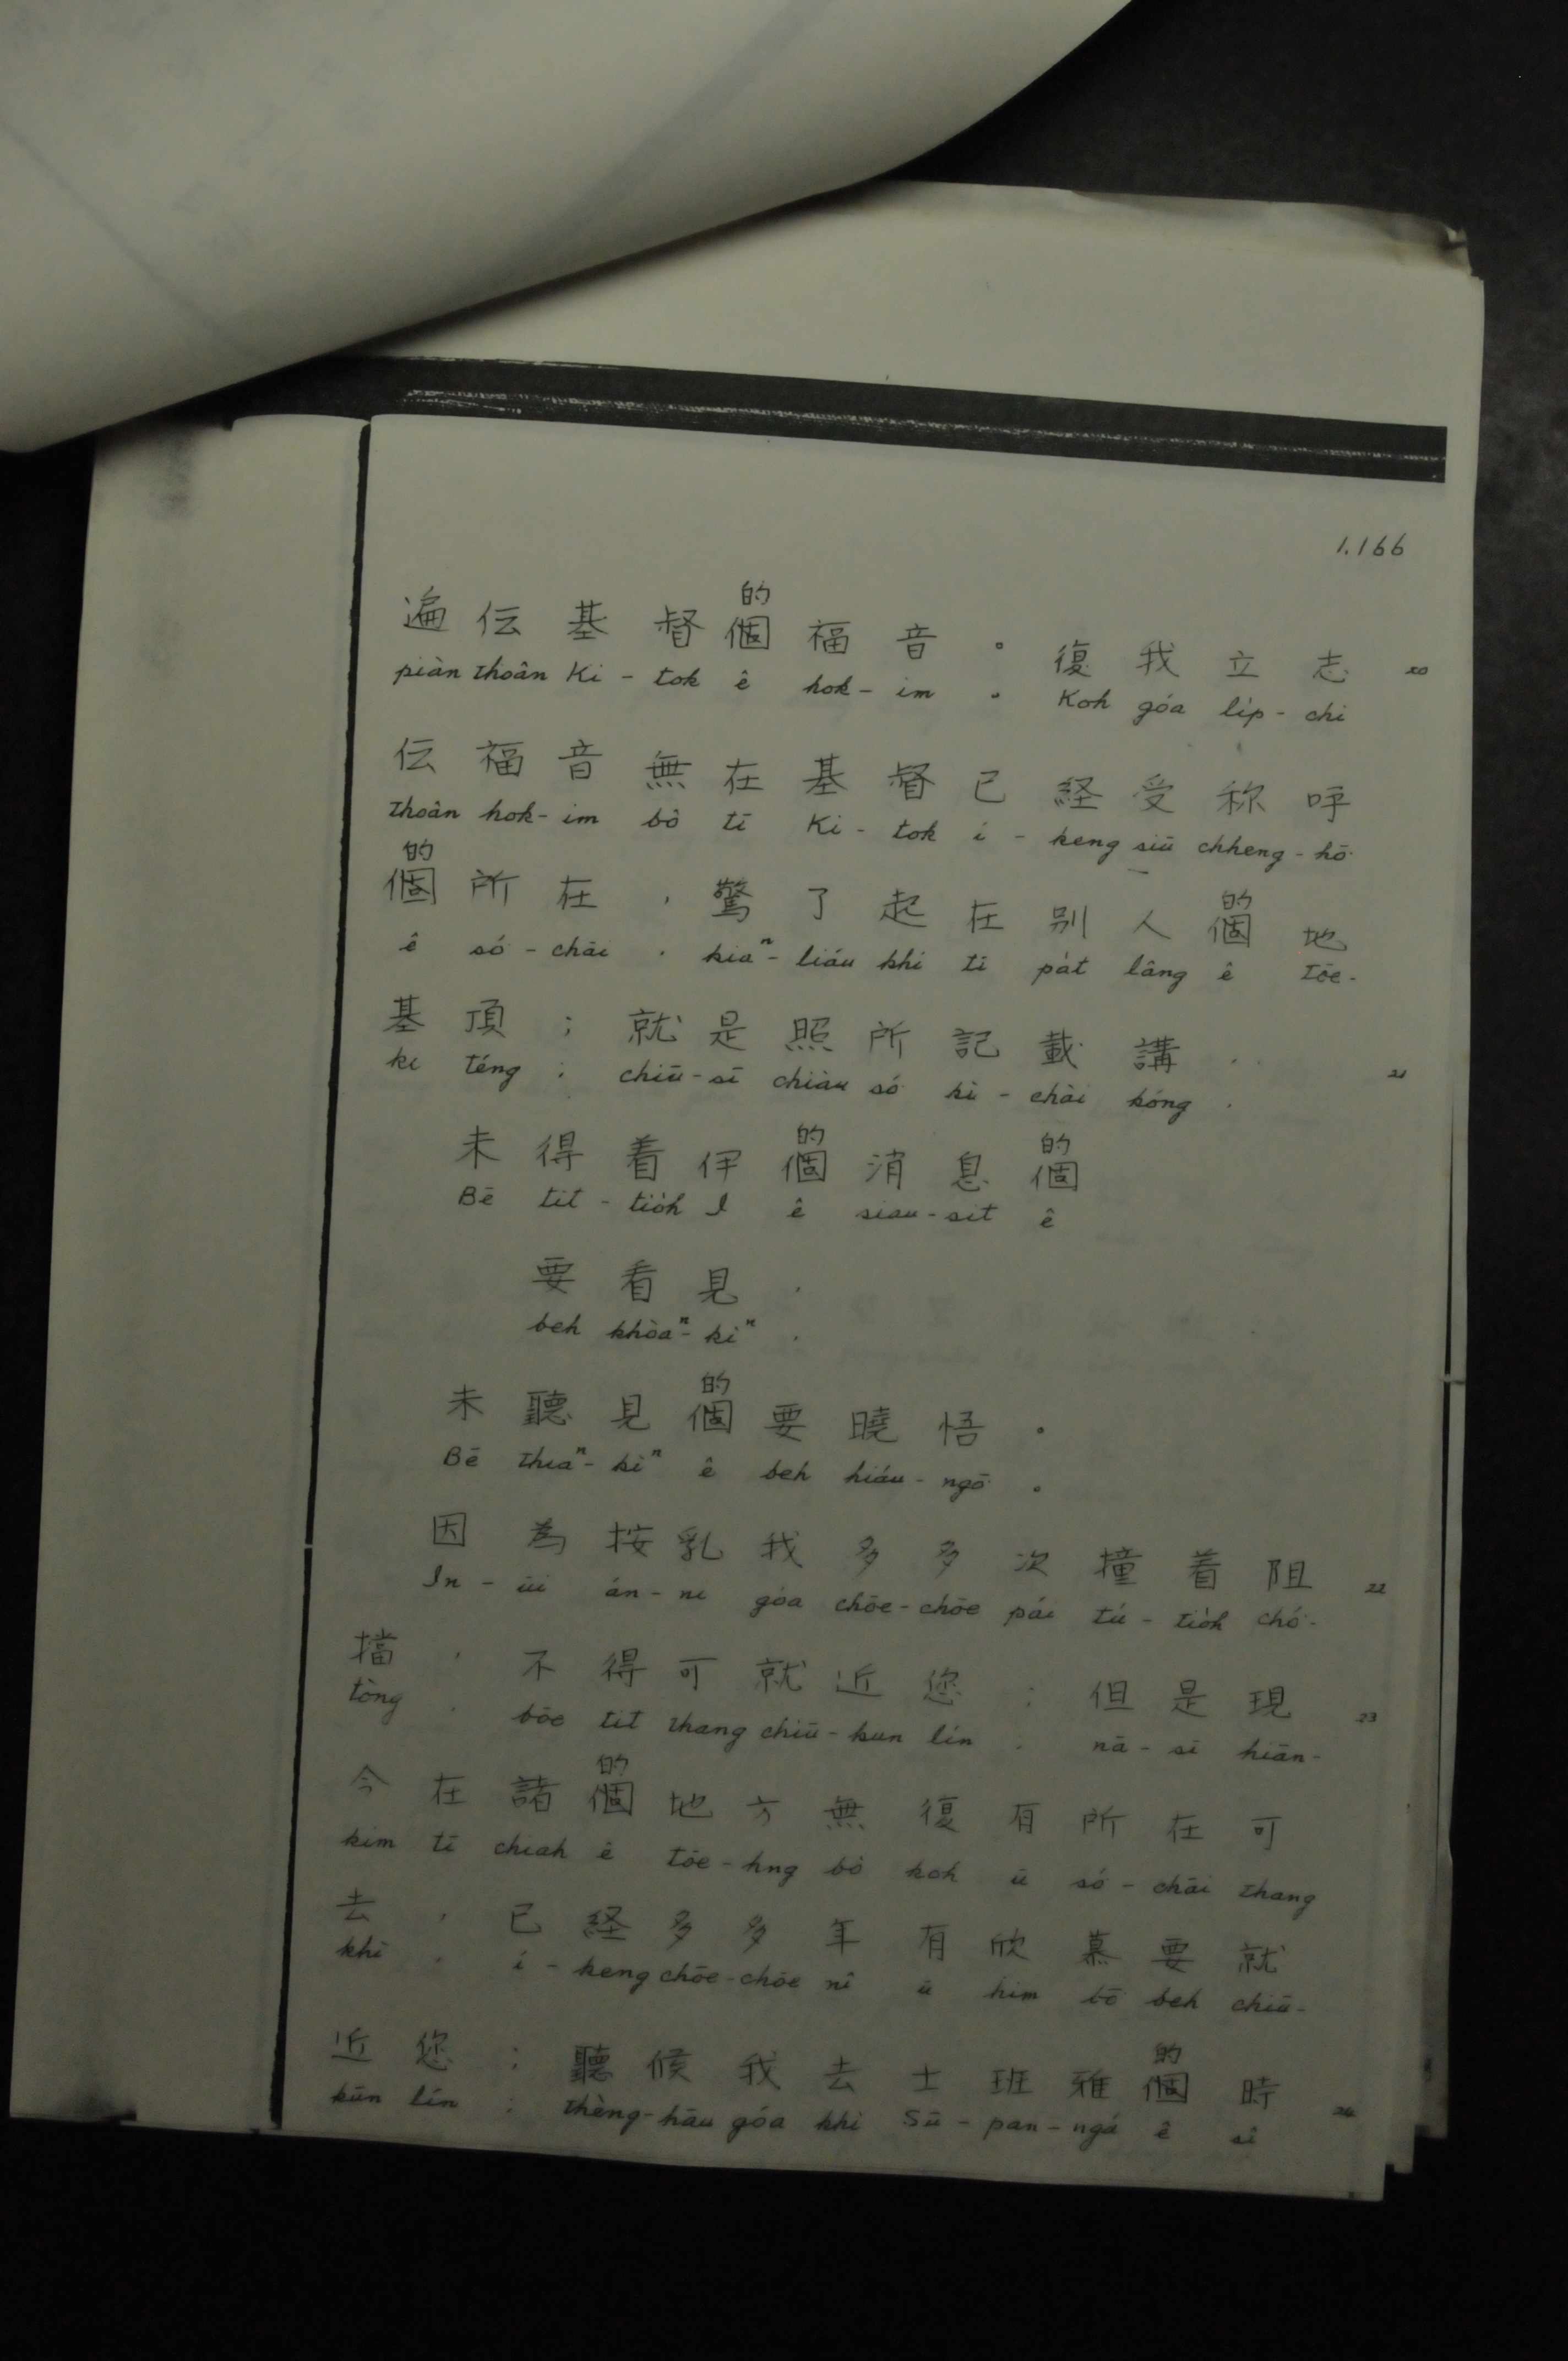 1.166
的
遍伝基督個福音。復我立志 20
piàn thoân Ki-tok ê hok-im 。 Koh góa li̍p-chì
伝福音無在基督已経受称呼
thoân hok-im bô tī Ki-tok í-keng siū chheng-hō͘
的 的
個所在，驚了起在別人個地
ê só͘-chāi , kiaⁿ-liáu khí tī pa̍t lâng ê tōe-
基頂；就是照所記載講， 21
ki téng ; chiū-sī chiàu só͘ kì-chài kóng ,
的 的
未得着伊個消息個
Bē tit-tio̍h I ê siau-sit ê
要看見，
beh khòaⁿ-kìⁿ ,
的
未聽見個要曉悟。
Bē thiaⁿ-kìⁿ ê beh hiáu-ngō͘ 。
因為按乳我多多次撞着阻 22
In-ūi án-ni góa chōe-chōe pái tú-tio̍h chó͘-
擋，不得可就近您；但是現 23
tòng , bōe tit thang chiū-kun lín ; nā-sī hiān-
的
今在諸個地方無復有所在可
kim tī chiah ê tōe-hng bô koh ū só͘-chāi thang
去，已経多多年有欣慕要就
khì , í-keng chōe-chōe nî ū him bō͘ beh chiū-
的
近您；聽候我去士班雅個時 24
kūn lín ; thèng-hāu góa khì Sū-pan-ngá ê sî